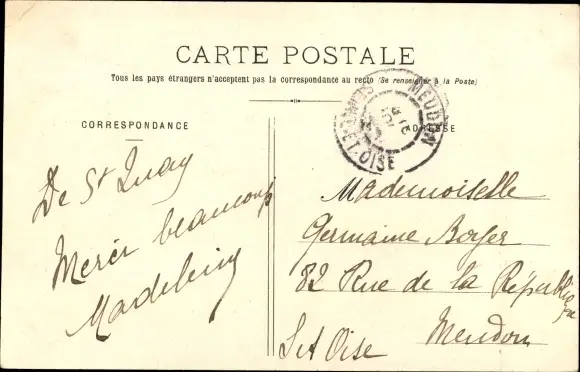 CARTE POSTALE
Tous les pays étrangers n'acceptent pas la correspondance au recto (Se renseigner à la Poste)
CORRESPONDANCE
ADRESSE
MEUDON
SEINE ET OISE
De St Quay
Merci beaucoup
Madeleine
Mademoiselle
Germaine Boyer
82 Rue de la République
Meudon
S et Oise